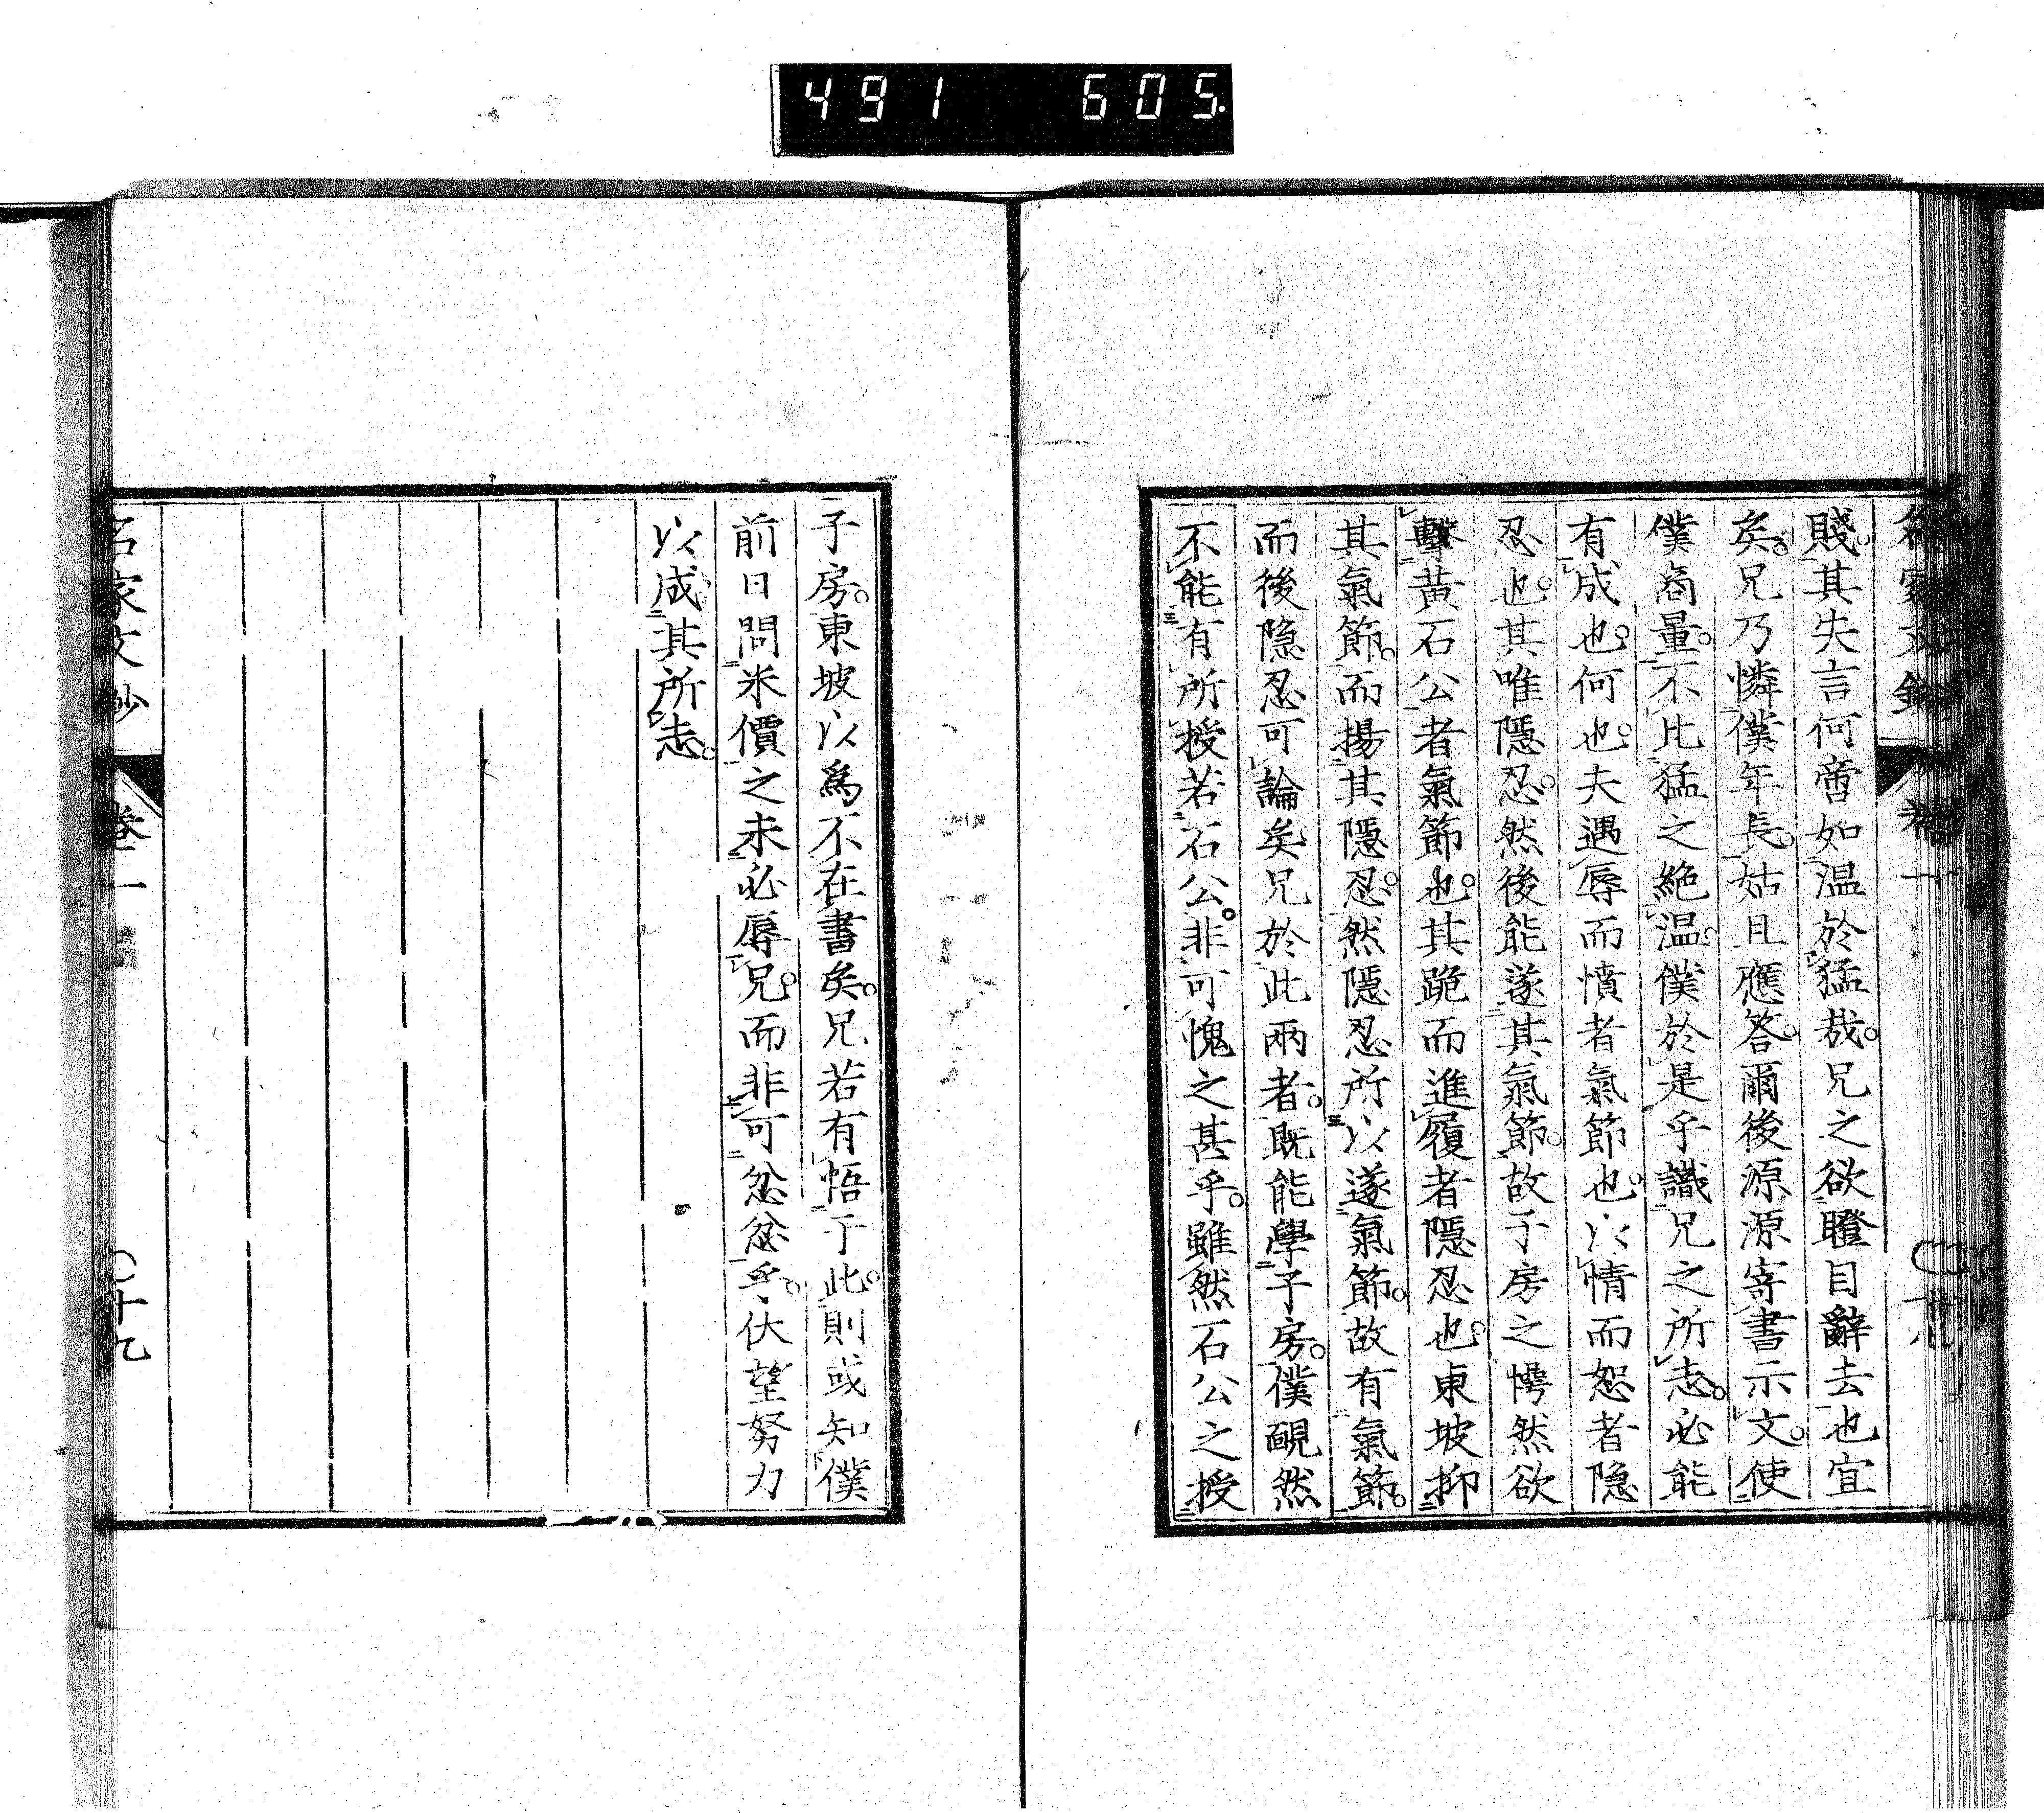 491 605.
賤。其失言何啻如温於猛哉。兄之欲瞪目辭去也宜
矣。兄乃憐僕年長。姑且應答。爾後源源寄書示文。使
僕商量。不比猛之絶温。僕於是乎識兄之所志。必能
有成也。何也。夫遇辱而憤者氣節也。以情而恕者隱
忍也。其唯隱忍。然後能遂其氣節。故子房之愕然欲
擊黃石公者氣節也。其跪而進履者隱忍也。東坡抑
其氣節。而揚其隱忍。然隱忍所以遂氣節。故有氣節。
而後隱忍可論矣。兄於此兩者。既能學子房。僕靦然
不能有所授。若石公。非可愧之甚乎。雖然石公之授
子房。東坡以爲不在書矣。兄若有悟于此。則或知僕
前日問米價之未必辱兄。而非可忿忿乎。伏望努力
以成其所志。
名家文鈔 卷一 〇十九